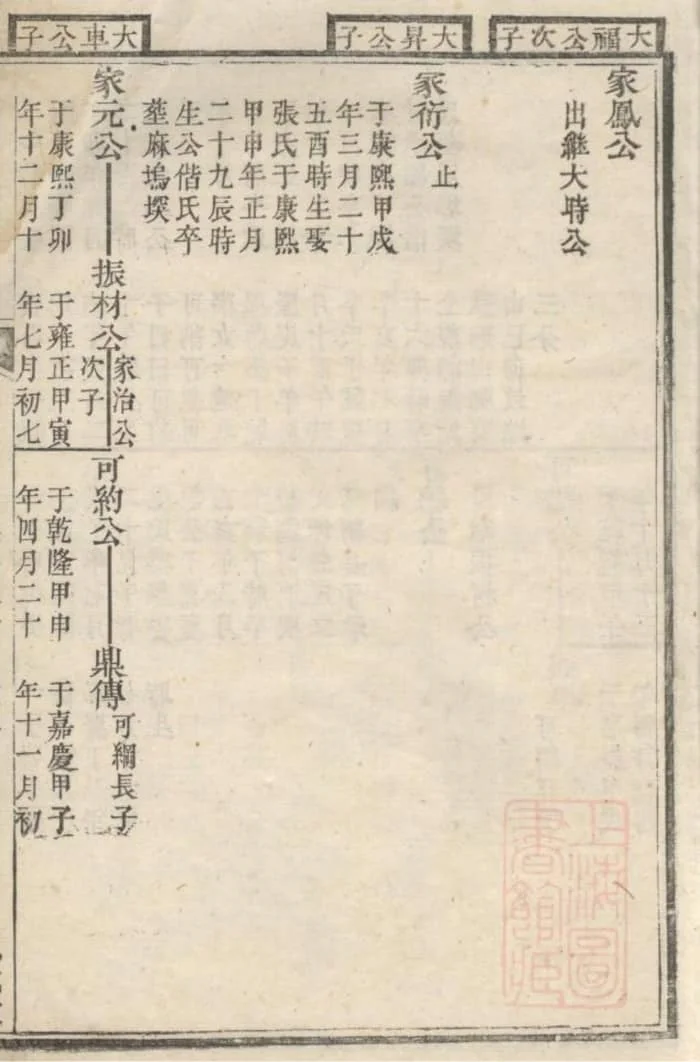 大福公次子
大昇公子
大車公子
家鳳公
出繼大時公
家衍公止
于康熙甲戌
年三月二十
五酉時生娶
張氏于康熙
甲申年正月
二十九辰時
生公偕氏卒
塟麻塢墺
家元公
于康熙丁卯
年十二月十
振材公
家治公
次子
于雍正甲寅
年七月初七
可約公
于乾隆甲申
年四月二十
鼎傳
可綱長子
于嘉慶甲子
年十一月初
上海圖
書館藏